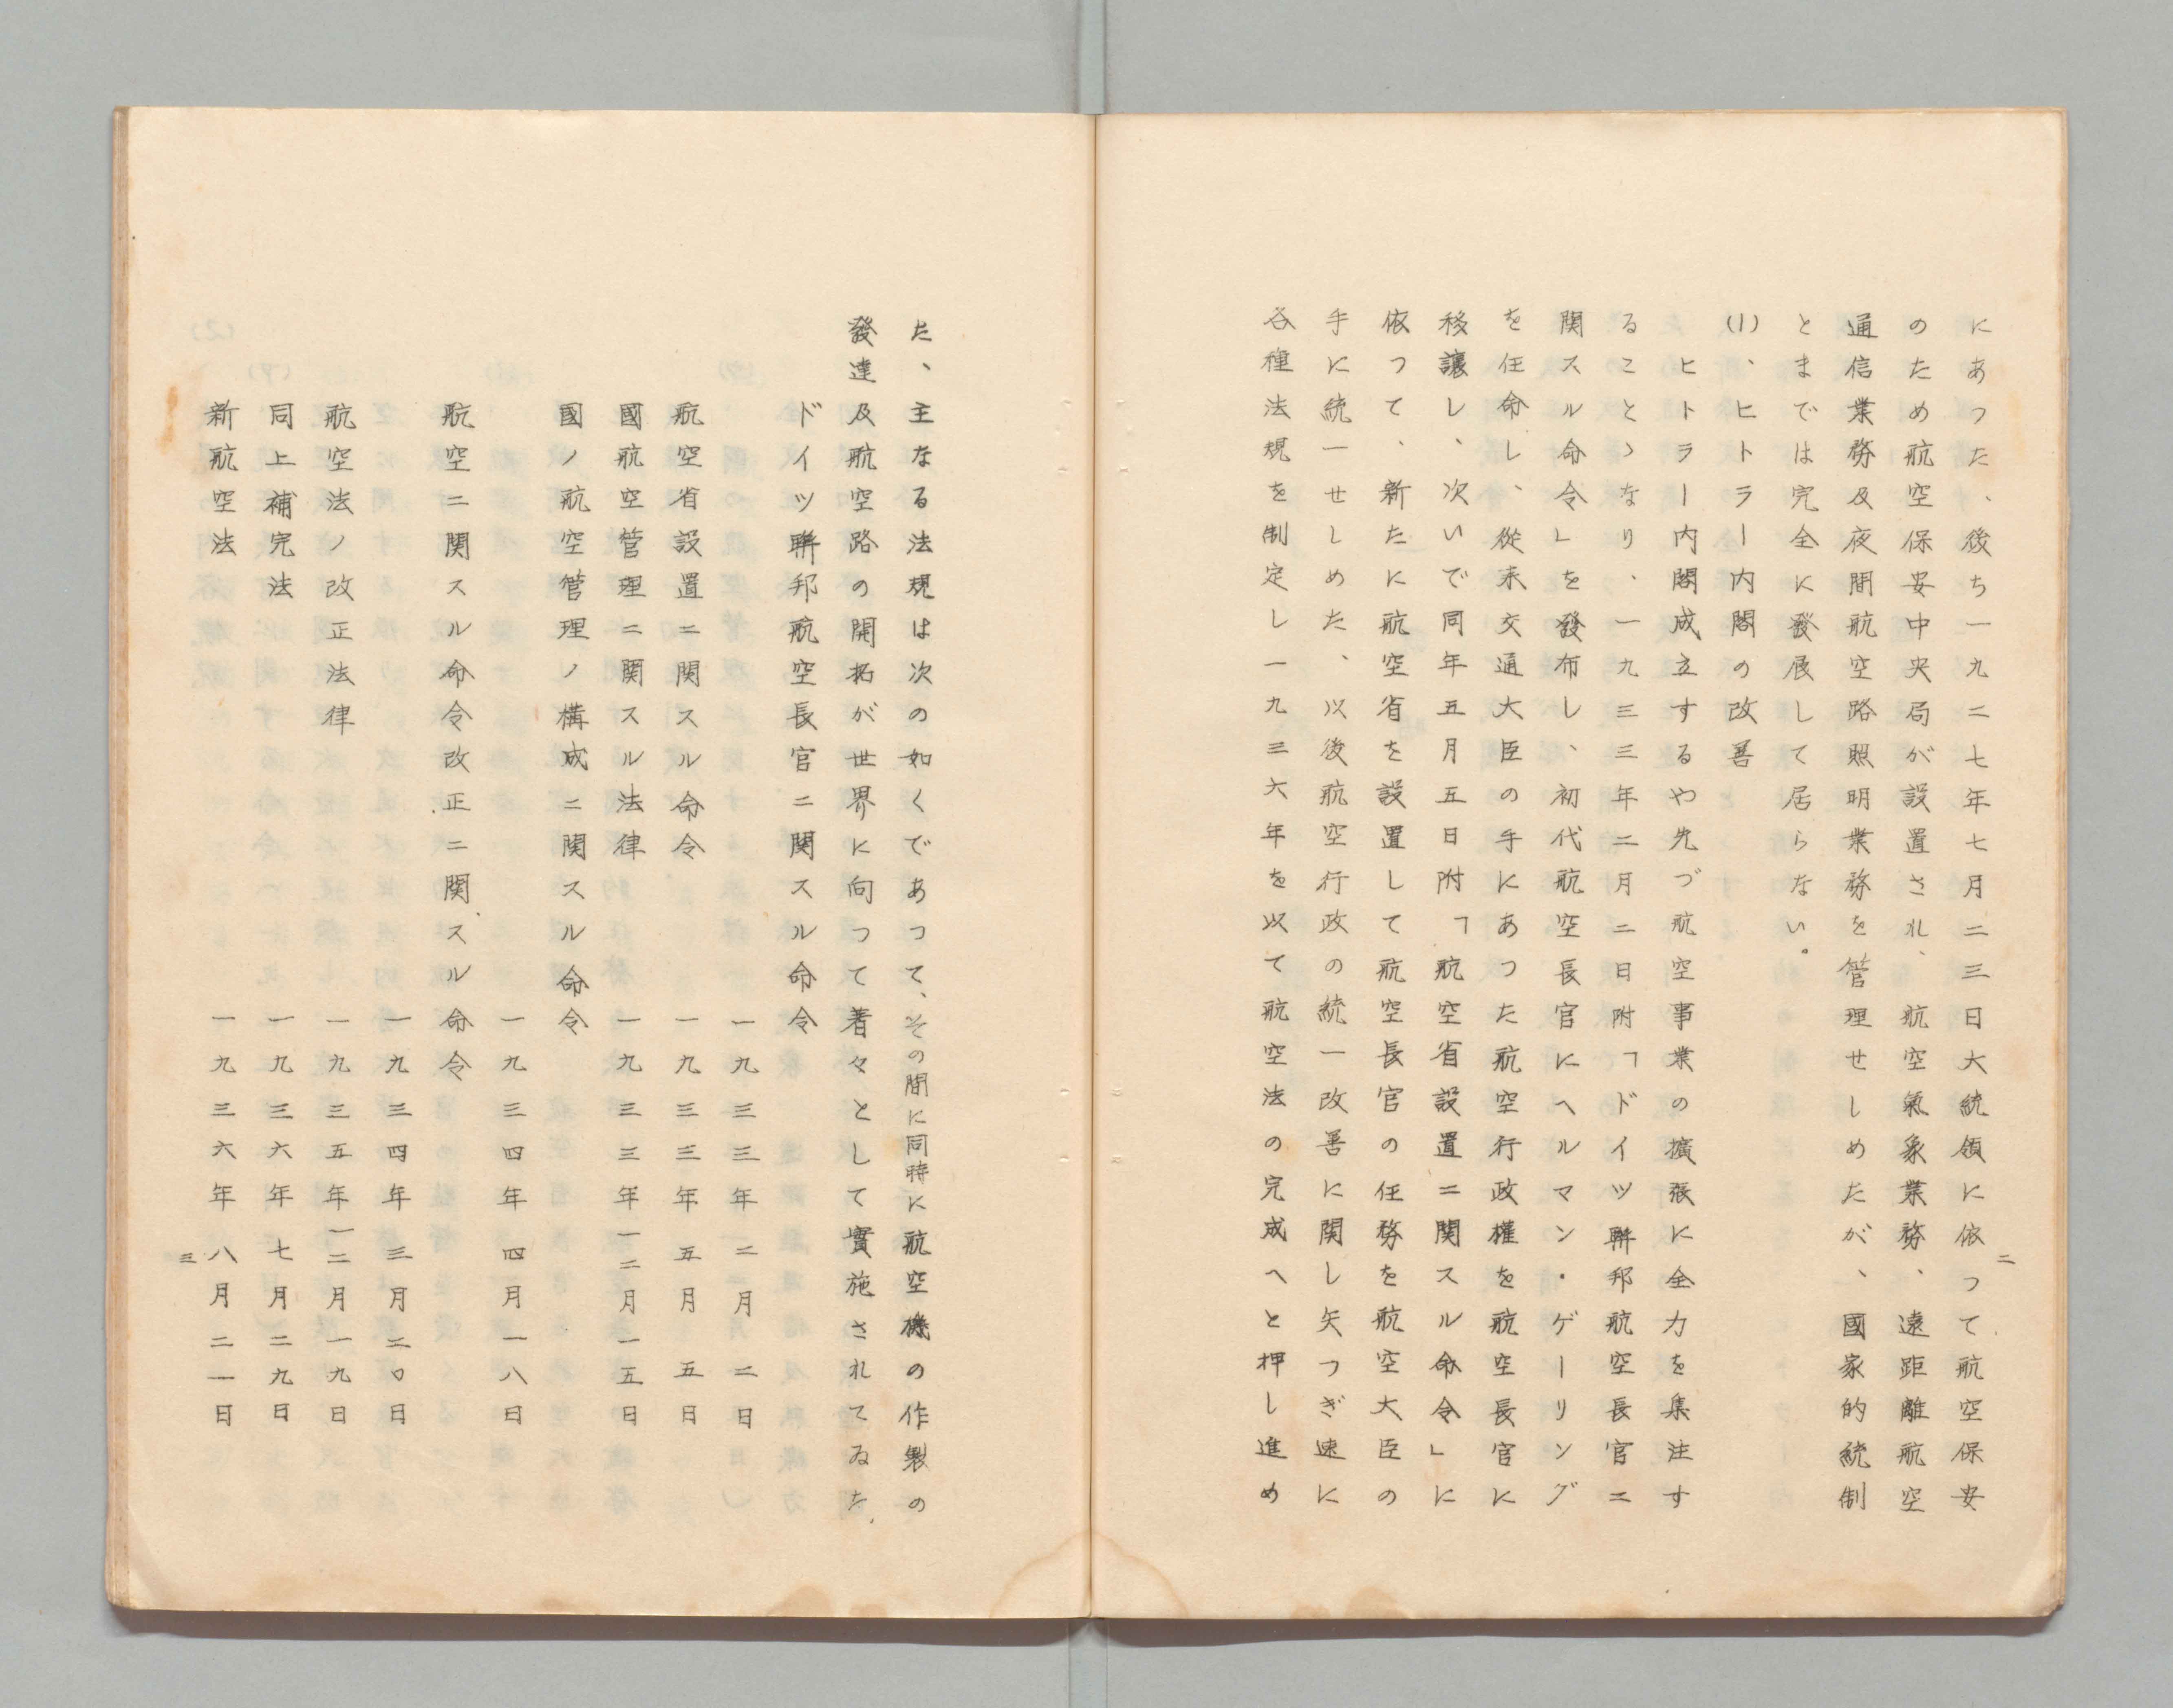 にあつた、後ち一九二七年七月二三日大統領に依つて航空保安
のため航空保安中央局が設置され、航空氣象業務、遠距離航空
通信業務及夜間航空路照明業務を管理せしめたが、國家的統制
とまでは完全に發展して居らない。
(1)、ヒトラー内閣の改善
ヒトラー内閣成立するや先づ航空事業の擴張に全力を集注す
ることゝなり、一九三三年二月二日附「ドイツ聯邦航空長官ニ
関スル命令」を發布し、初代航空長官にヘルマン・ゲーリング
を任命し、從来交通大臣の手にあつた航空行政權を航空長官に
移讓し、次いで同年五月五日附「航空省設置ニ関スル命令」に
依つて、新たに航空省を設置して航空長官の任務を航空大臣の
手に統一せしめた、以後航空行政の統一改善に関し矢つぎ速に
各種法規を制定し一九三六年を以て航空法の完成へと押し進め
二
た、主なる法規は次の如くであつて、その間に同時に航空機の作製の
發達及航空路の開拓が世界に向つて着々として實施されてゐた、
ドイツ聯邦航空長官ニ関スル命令
一九三三年二月二日
航空省設置ニ関スル命令 一九三三年五月五日
國航空管理ニ関スル法律 一九三三年一二月一五日
國ノ航空管理ノ構成ニ関スル命令
一九三四年四月一八日
航空ニ関スル命令改正ニ関スル命令
一九三四年三月二〇日
航空法ノ改正法律 一九三五年一二月一九日
同上補完法 一九三六年七月二九日
新航空法 一九三六年八月二一日
三